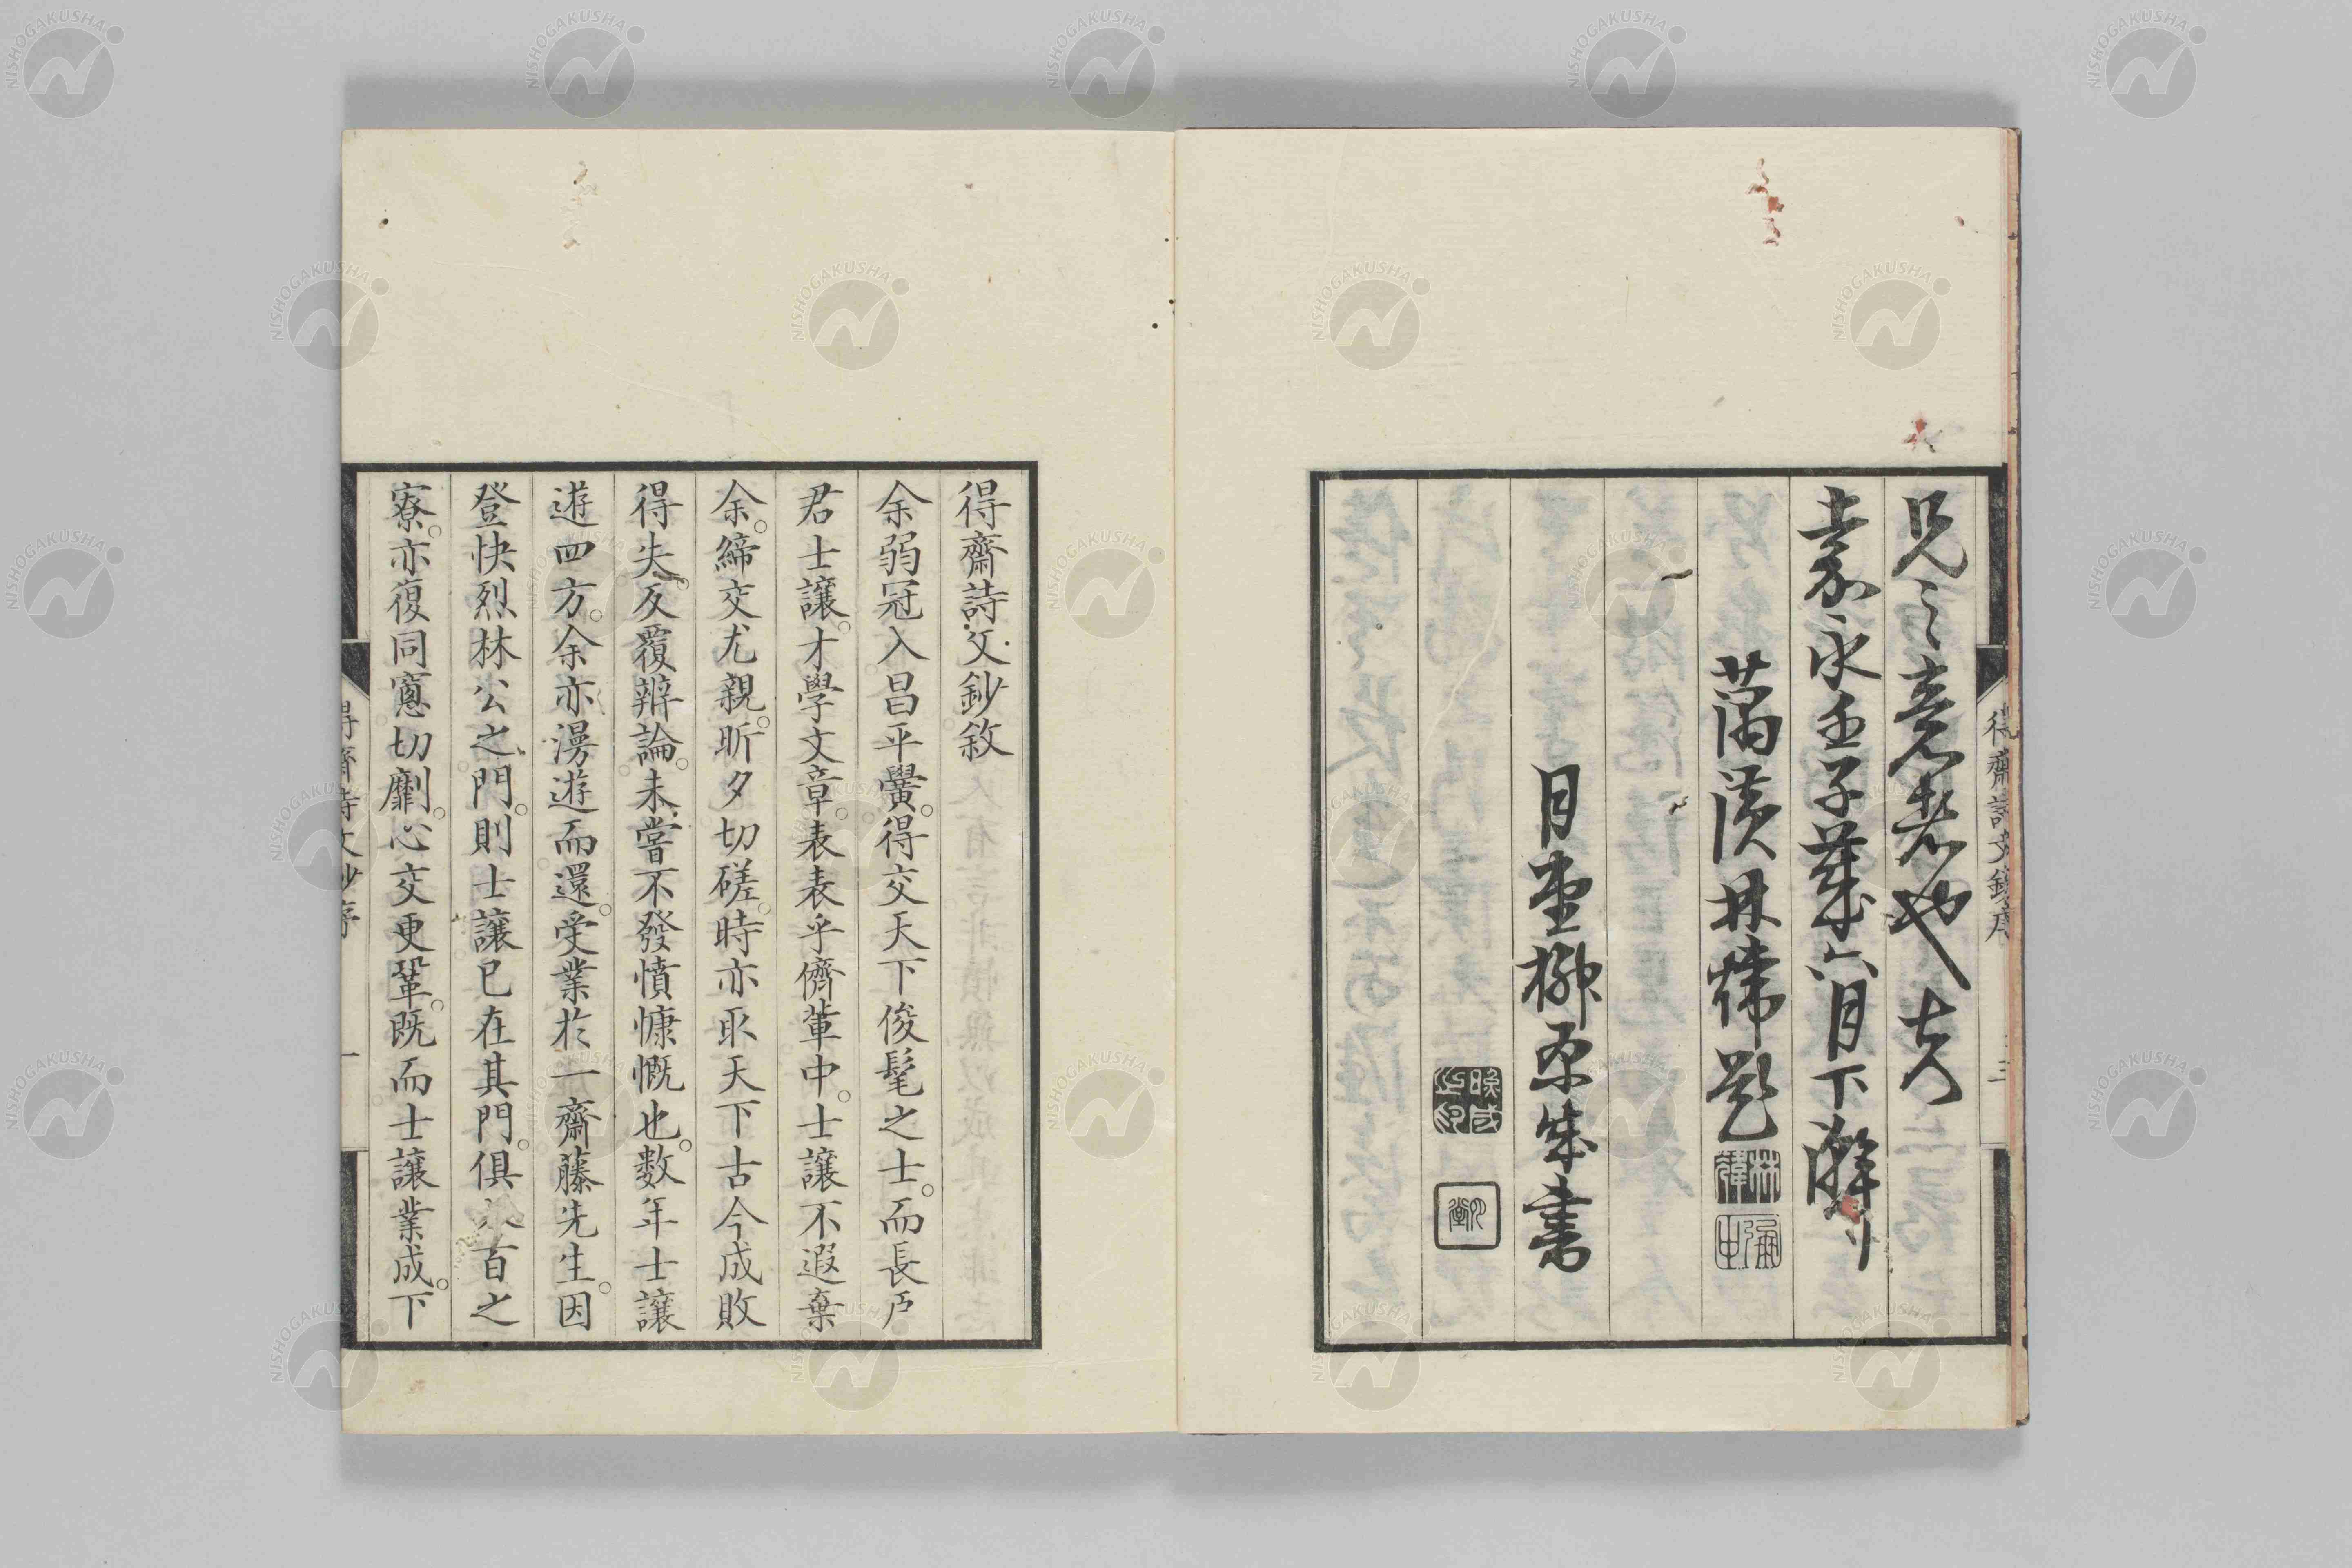 兄之意者也夫
嘉永壬子歳六月下澣
藕潢林煒題
月堂柳原集書
得齋詩文鈔序
三
得齋詩文鈔敘
余弱冠入昌平黌。得交天下俊髦之士。而長戸
君士讓。才學文章。表表乎儕輩中。士讓不遐棄
余。締交尤親。昕夕切磋。時亦取天下古今成敗
得失。反覆辨論。未嘗不發憤慷慨也。數年士讓
遊四方。余亦漫遊而還。受業於一齋藤先生。因
登快烈林公之門。則士讓已在其門。俱 百之
寮。亦復同窻切劘。心交更鞏。既而士讓業成。下
得齋詩文鈔序
一
NISHOGAKUSHA